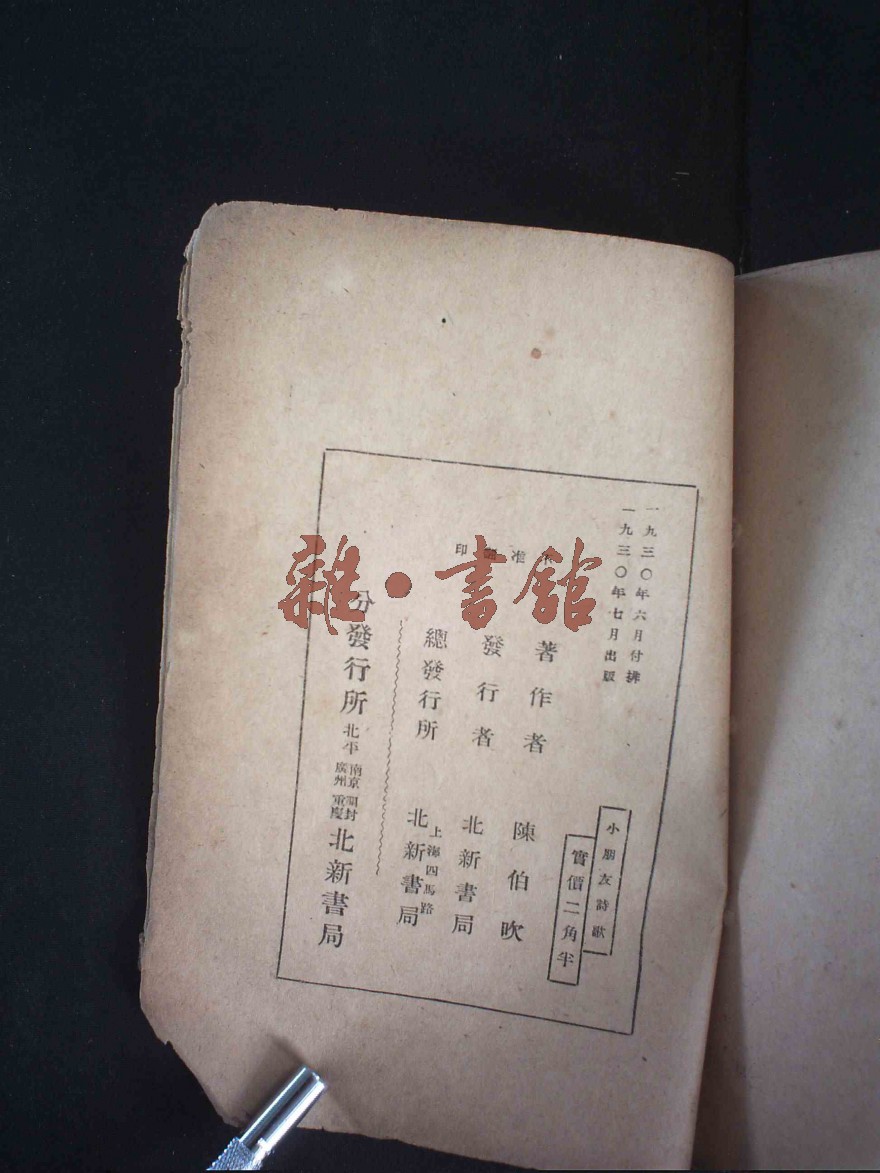 一九三〇年六月付排
一九三〇年七月出版
小朋友詩歌
實價二角半
不准翻印
著作者 陳伯吹
發行者 北新書局
總發行所 上海四馬路 北新書局
分發行所 北平 南京 開封 廣州 重慶 北新書局
雜·書館